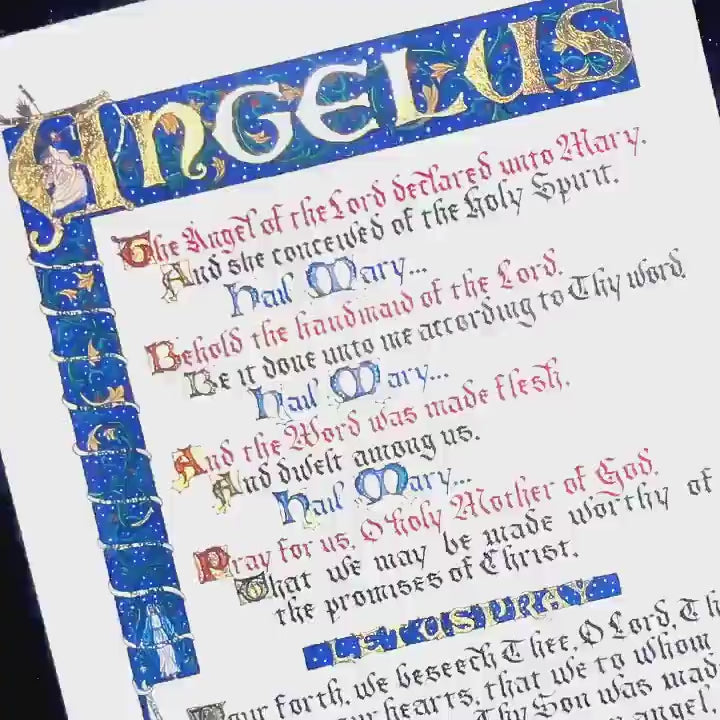 ANGELUS
The Angel of the Lord declared unto Mary.
And she conceived of the Holy Spirit.
Hail Mary...
Behold the handmaid of the Lord.
Be it done unto me according to Thy word.
Hail Mary...
And the Word was made flesh.
And dwelt among us.
Hail Mary...
Pray for us, O holy Mother of God.
That we may be made worthy of
the promises of Christ.
LET US PRAY
Pour forth, we beseech Thee, O Lord, Th
our hearts, that we to whom
Thy Son was mad
angel,